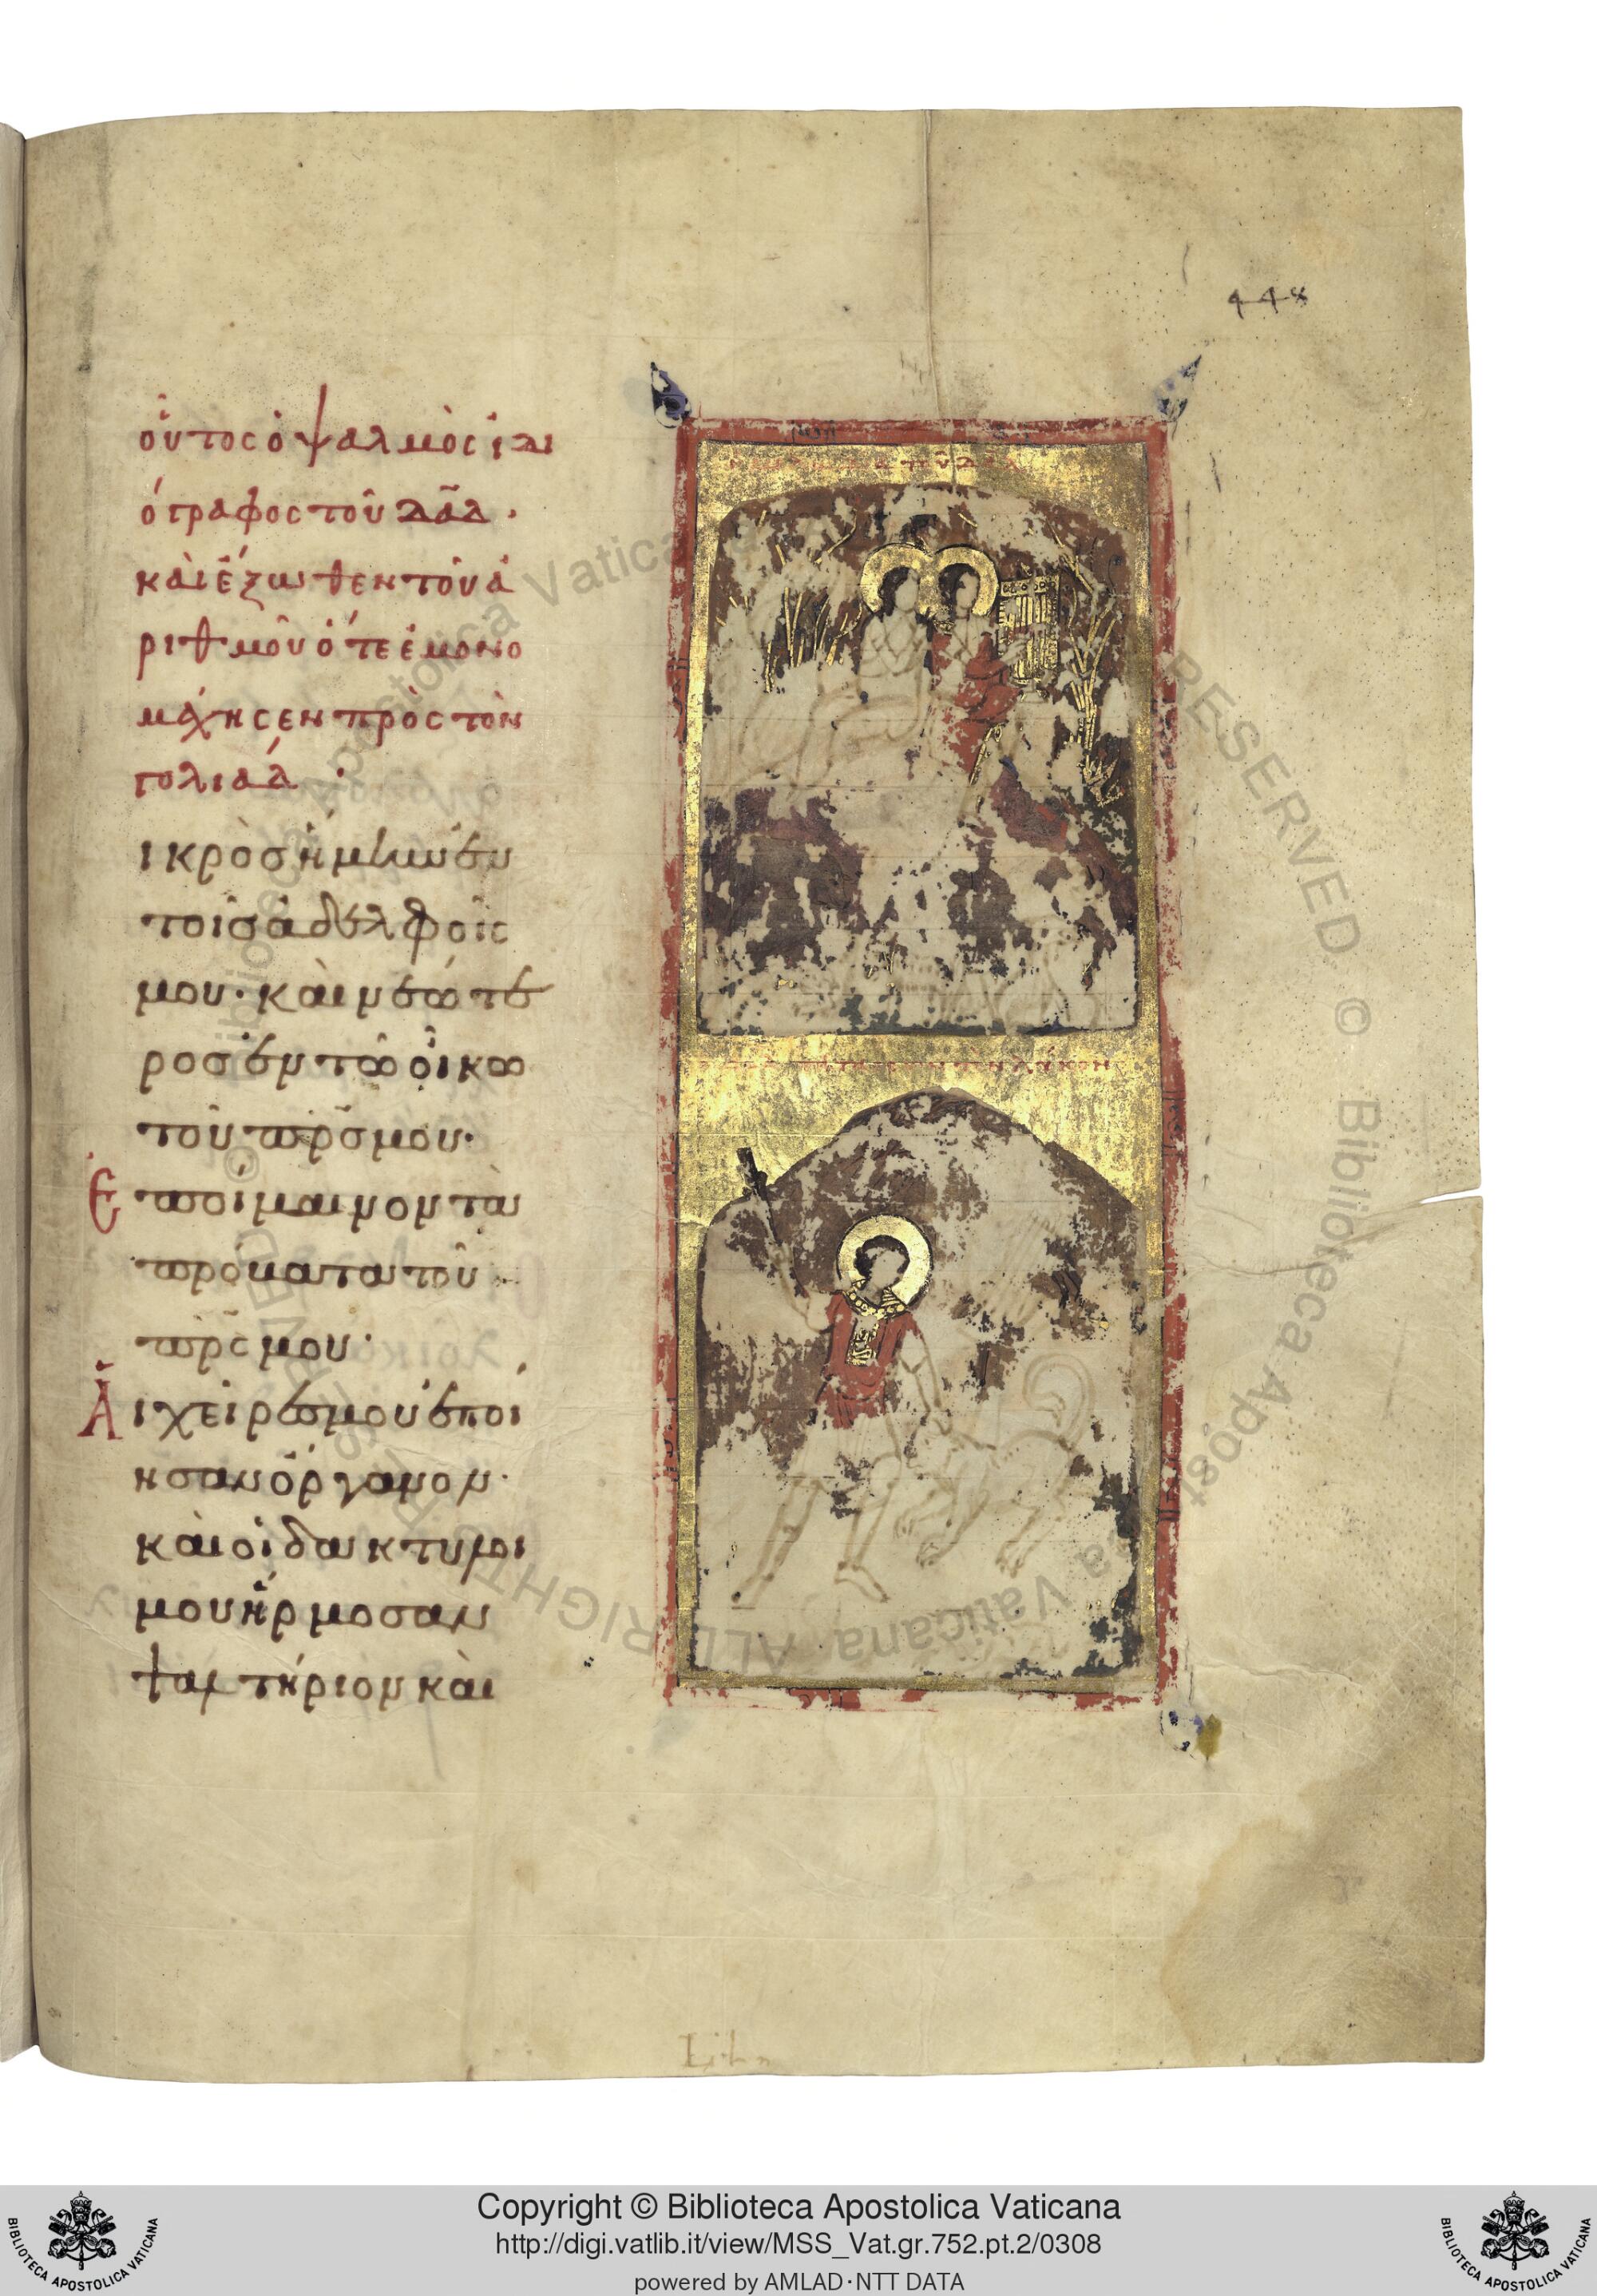 448
οὗτος ὁ ψαλμὸς ἰδι
όγραφος τοῦ δᾱδ ·
καὶ ἔξωθεν τοῦ ἀ
ριθμοῦ ὅτε ἐμονο
μάχησεν πρὸς τὸν
γολιάδ ·
ικρὸς ἤμην ἐν
τοῖς ἀδελφοῖς
μου · καὶ νεώτε
ρος ἐν τῶ οἴκω
τοῦ πρ̅ς μου ·
Ἐποίμαινον τὰ
πρόβατα τοῦ
πρ̅ς μου ·
Ἁι χεῖρές μου ἐποί
ησαν ὄργανον ·
καὶ οἱ δάκτυλοι
μου ἥρμοσαν
ψαλτήριον καὶ
© Biblioteca Apostolica Vaticana ALL RIGHTS RESERVED
Copyright © Biblioteca Apostolica Vaticana
http://digi.vatlib.it/view/MSS_Vat.gr.752.pt.2/0308
powered by AMLAD·NTT DATA
BIBLIOTECA APOSTOLICA VATICANA
BIBLIOTECA APOSTOLICA VATICANA